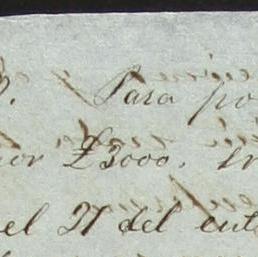 Para po
or £3000.
el 27 del ent